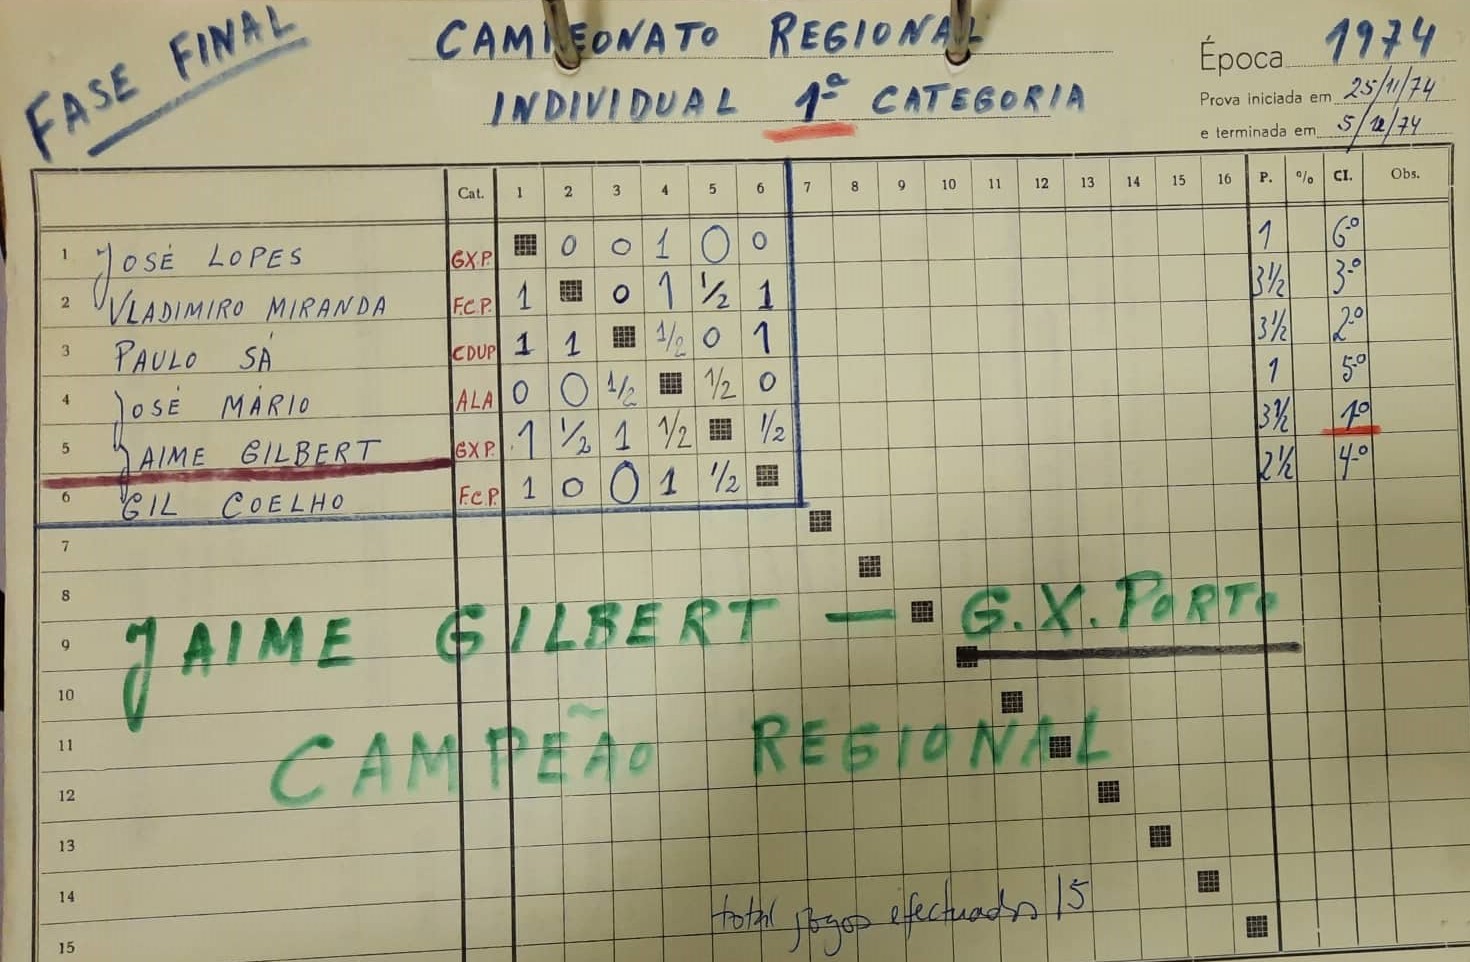 FASE FINAL
CAMPEONATO REGIONAL
INDIVIDUAL 1ª CATEGORIA
Época 1974
Prova iniciada em 25/11/74
e terminada em 5/12/74
Cat. 1 2 3 4 5 6 7 8 9 10 11 12 13 14 15 16 P. % Cl. Obs.
1 JOSÉ LOPES G.X.P. 0 0 1 0 0 1 6º
2 VLADIMIRO MIRANDA F.C.P. 1 0 1 ½ 1 3½ 3º
3 PAULO SÁ CDUP 1 1 ½ 0 1 3½ 2º
4 JOSÉ MÁRIO ALA 0 0 ½ ½ 0 1 5º
5 JAIME GILBERT GXP. 1 ½ 1 ½ ½ 3½ 1º
6 GIL COELHO F.C.P. 1 0 0 1 ½ 2½ 4º
7
8
JAIME GILBERT — G.X.PORTO
9
10
11
CAMPEÃO REGIONAL
12
13
14
total jogos efectuados 15
15